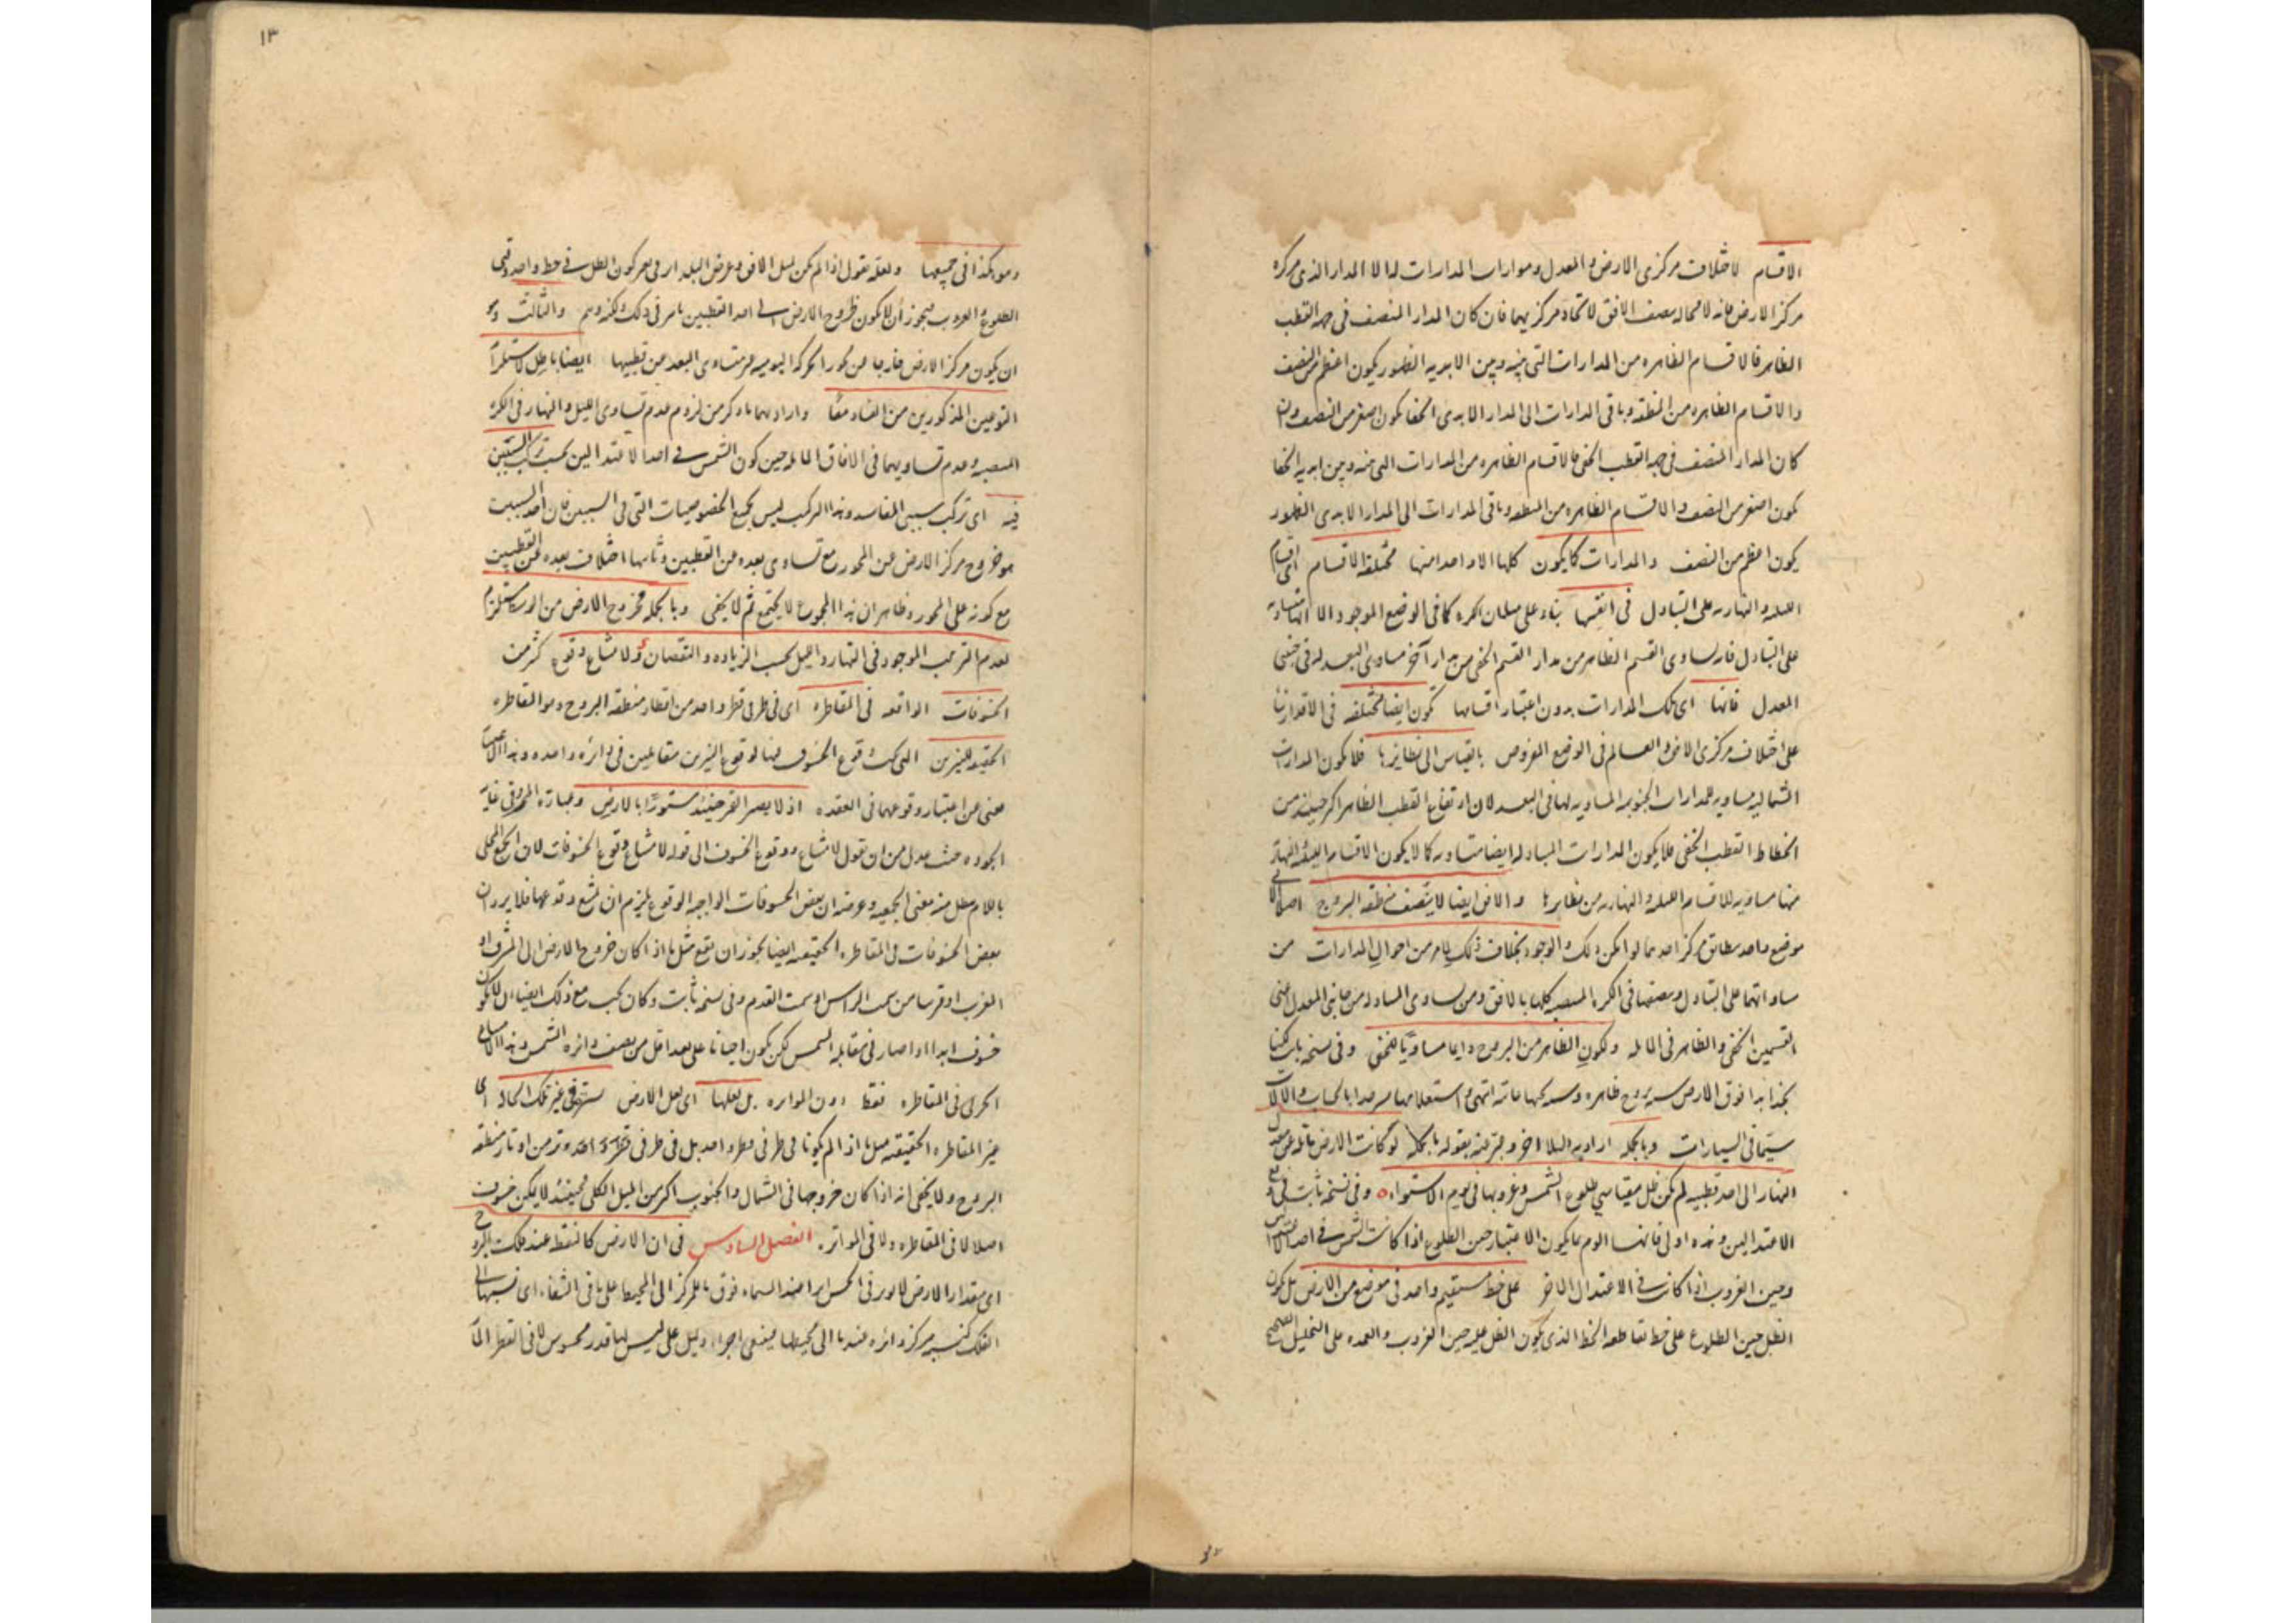 الاقسام لاختلاف مركزى الارض و المعدل وموازات المدارات له الا المدار الذى مركزه
مركز الارض فانه لا محالة ينصف الافق لاتحاد مركزيهما فان كان المدار المنصف فى جهة القطب
الظاهر فالاقسام الظاهره من المدارات التى بينه وبين الابدية الظهور يكون اعظم من النصف
والاقسام الظاهره من المنطقه وباقى المدارات الى المدار الابدى الخفا يكون اصغر من النصف وان
كان المدار المنصف فى جهة القطب الخفى فالاقسام الظاهره من المدارات التى بينه وبين ابدية الخفا
يكون اصغر من النصف والاقسام الظاهره من المنطقه وباقى المدارات الى المدار الابدى الظهور
يكون اعظم من النصف والمدارات كما يكون كلها الا واحدا منها مختلفة الاقسام اى اقسام
الليلية والنهارية على التبادل فى انفسها بناء على ميلان الكره كما فى الوضع الموجود الا انها متساوية
على التبادل فان تساوى القسم الظاهر من مدار القسم الخفى من مدار آخر مساوى البعد له فى جنبتى
المعدل فانها اى تلك المدارات بدون اعتبار اقسامها تكون ايضا مختلفه فى الاقدار بناء
على اختلاف مركزى الافق و العالم فى الوضع المفروض بالقياس الى نظايرها فلا يكون المدارات
الشمالية مساوية للمدارات الجنوبية المساوية لها فى البعد لان ارتفاع القطب الظاهر اكثر حينئذ من
انحطاط القطب الخفى فلا يكون المدارات المتبادلة ايضا متساوية كما لا يكون الاقسام الليلية والنهارية
منها مساوية للاقسام الليلية والنهارية من نظايرها والافق ايضا لا ينصف منطقة البروج اصلا الا فى
موضع واحد يطابق مركز احدهما لو امكن ذلك والوجود بخلاف ذلك لما مر من احوال المدارات من
مساواتها على التبادل وتنصفها فى الكره المنتصبه كلها بالافق ومن تساوى المتبادلة من جانبى المعدل اعنى
القسمين الخفى والظاهر فى المائلة ولكون الظاهر من البروج دايما مساويا للخفى وفى نسخة بابت هكذا
نجد ابدا فوق الارض ستة بروج ظاهره وستة تحتها غائبة انتهى واستعلامها مرصدا بالحساب والالات
سيما فى السيارات وبالجملة اراد به البلاد اخر وميزه بقوله بالجملة لو كانت الارض مائلة عن معدل
النهار الى احد قطبيه لم يكن ظل مقياسى طلوع الشمس وغروبها فى يوم الاستواء وفى نسخة ثابت فى يومى
الاعتدالين وهذه اولى فانها اليوم ما يكون الاعتبار حين الطلوع اذا كانت الشمس فى احد الاعتدالين
وحين الغروب اذا كانت فى الاعتدال الاخر على خط مستقيم واحد فى موضع من الارض بل يكون
الظل حين الطلوع على خط تقاطعه الخط الذى يكون الظل عليه حين الغروب والعمده على التخيل الصحيح
١٣
وهو هكذا فى جميعها ولعله نقول اذا لم يكن
الطلوع والغروب فيجوز ان لا يكون خروج الارض الى احد القطبين ولكنه وهم والثالث وهو
ان يكون مركز الارض خارجا عن محور الحركة اليومية غير متساوى البعد عن قطبيها ايضا باطل لاستلزامه
النوعين المذكورين من الفساد معا واراد بهما ما ذكر من لزوم عدم تساوى الليل والنهار فى الكره
المنتصبه وعدم تساويهما فى الافاق المائلة حين كون الشمس فى احد الاعتدالين بحسب تركب السببين
فيه اى تركب سببى المفاسد وهذا التركب ليس بجميع الخصوصيات التى فى السببين فان احد السببين
هو خروج مركز الارض عن المحور مع تساوى بعده عن القطبين وثانيها اختلاف بعده عن القطبين
مع كونه على المحور وظاهر ان هذا المجموع لا يجتمع ثم لا يخفى وبالجملة فخروج الارض من الوسط يستلزم
لعدم الترتيب الموجود فى النهار والليل بحسب الزياده و النقصان ولامتناع وقوع كثير من
الخسوفات الواقعه فى المقاطره اى فى طرفى قطر واحد من اقطار منطقة البروج وهو المقاطره
الحقيقية للنيرين التى يجب وقوع الخسوف فيها لوقوع النيرين متقابلين فى دائره واحده وهذا الاعتبار
مغنى عن اعتبار وقوعهما فى العقده اذ لا يصير القمر حينئذ مستورا بالارض وعبارة المتن وفى غاية
الجوده حيث عدل من ان يقول لامتناع وقوع الخسوف الى قوله لامتناع وقوع الخسوفات لان الجمع المحلى
باللام يبطل منه معنى الجمعيه وغرضه ان بعض الخسوفات الواجبه الوقوع يلزم ان يمتنع وقوعها فلا يرد ان
بعض الخسوفات فى المقاطره الحقيقيه ايضا يجوز ان يقع مثل ما اذا كان خروج الارض الى المشرق او
المغرب او قربا من سمت الراس او سمت القدم وفى نسخة ثابت وكان يجب مع ذلك ايضا ان لا يكون
خسوف ابدا اذا صار فى مقابلة الشمس لكن يكون احيانا على بعد اقل من نصف دائره الشمس وهذا الاقسام
الحرى فى المقاطره فقط دون المواتره بل لعلها اى لعل الارض ستر فى غير تلك الحالة اى
غير المقاطره الحقيقيه مثل ما اذا لم يكونا فى طرفى قطر واحد بل فى طرفى وتر من اوتار منطقة
البروج ولا يخفى انه اذا كان خروجها فى الشمال والجنوب اكثر من الميل الكلى فحينئذ لا يمكن خسوف
اصلا لا فى المقاطره ولا فى المواتره. الفصل السادس فى ان الارض كالنقطه عند فلك البروج
اى مقدار الارض لا يؤثر فى الحس اثرا عند السماء فوق ما للمركز الى المحيط على ما فى الشفاء اى نسبتها الى
الفلك كنسبة مركز دائره عندها الى محيطها دليل على ليس لها قدر محسوس لا فى القطر